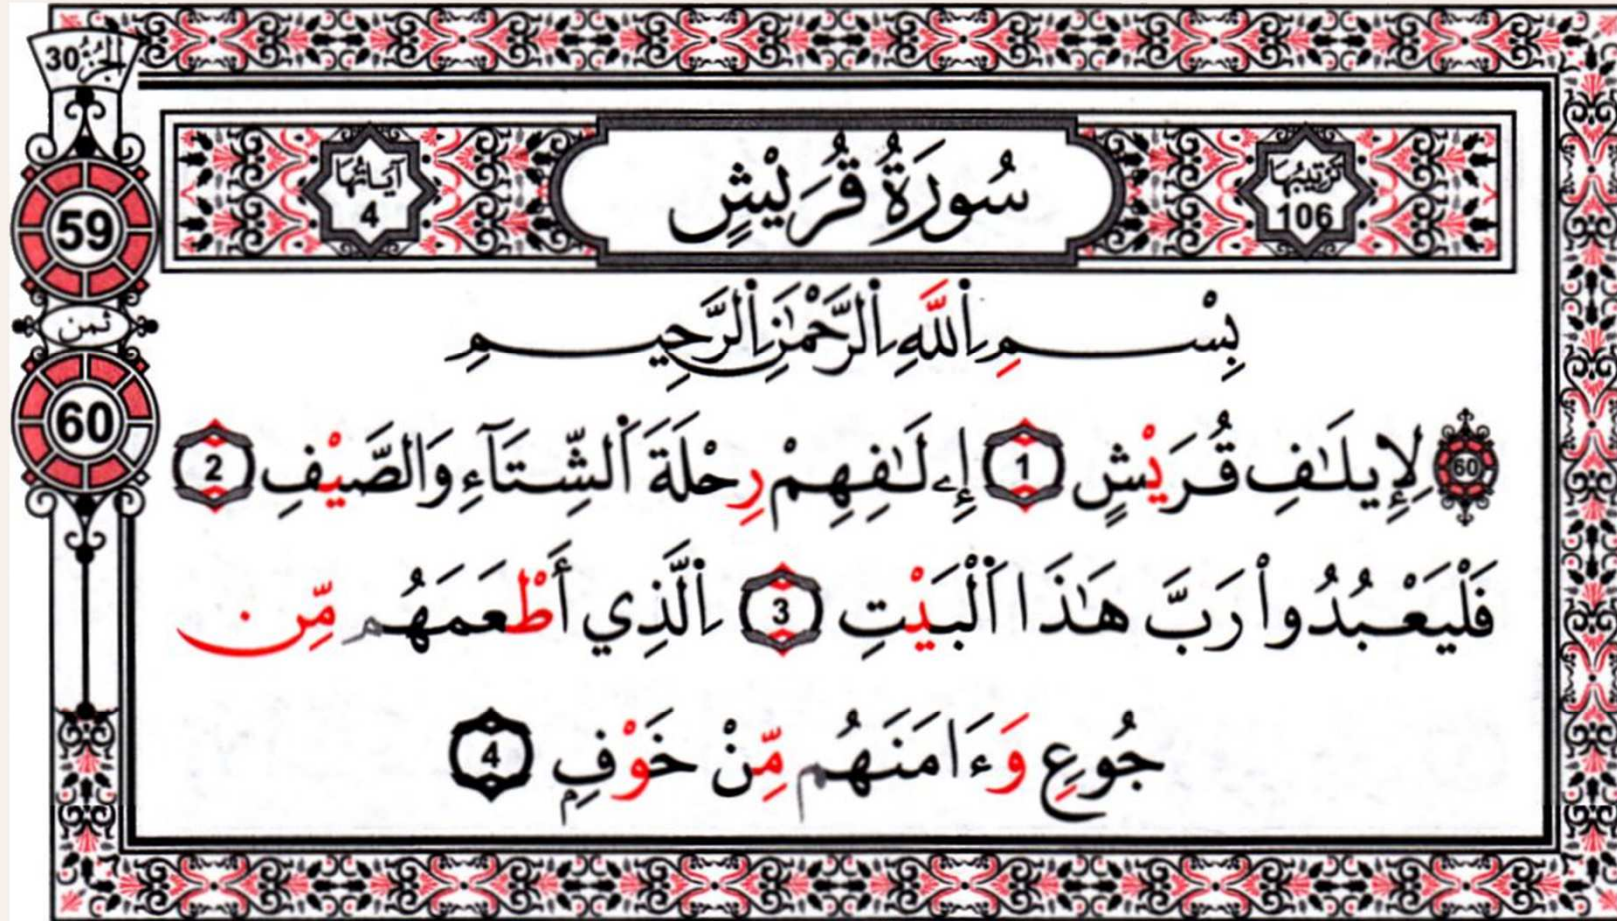 الجزء 30
ترتيبها 106
سُورَةُ قُرَيْشٍ
آياتها 4
59
ثمن
60
بِسْمِ اِ۬للَّهِ اِ۬لرَّحْمَٰنِ اِ۬لرَّحِيمِ
60 لِإِيلَٰفِ قُرَيْشٍ 1 إِۦلَٰفِهِمْ رِحْلَةَ اَ۬لشِّتَآءِ وَالصَّيْفِ 2
فَلْيَعْبُدُواْ رَبَّ هَٰذَا اَ۬لْبَيْتِ 3 اِ۬لَّذِي أَطْعَمَهُم مِّن
جُوعٍ وَءَامَنَهُم مِّنْ خَوْفٍ 4